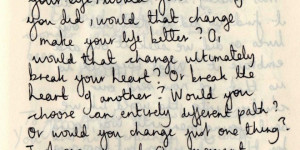 you did, would that change
make your life better? Or,
would that change ultimately
break your heart? Or break the
heart of another? Would you
choose an entirely different path?
Or would you change just one thing?